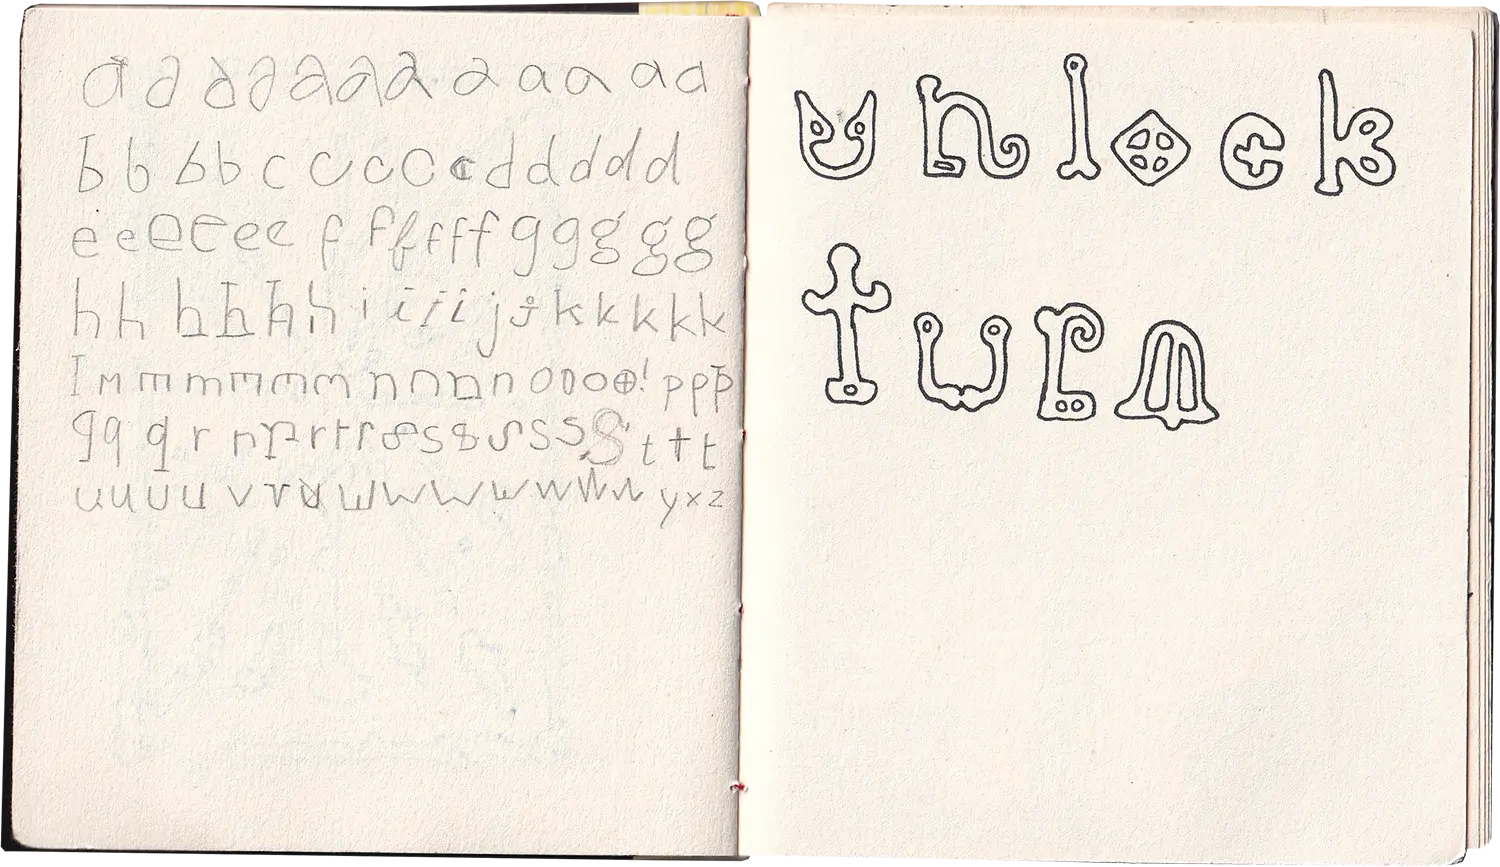 a a a a a a a a a a a a
b b b b c c c c c d d d d d
e e e e e e f f f f f f g g g g g
h h h h h h i i i i j j k k k k k
I m m m m m m n n n n o o o o ! p p p
q q q r r r r r r s s s s s s s t t t
u u u u v v v w w w w w w w y x z
unlock
turn